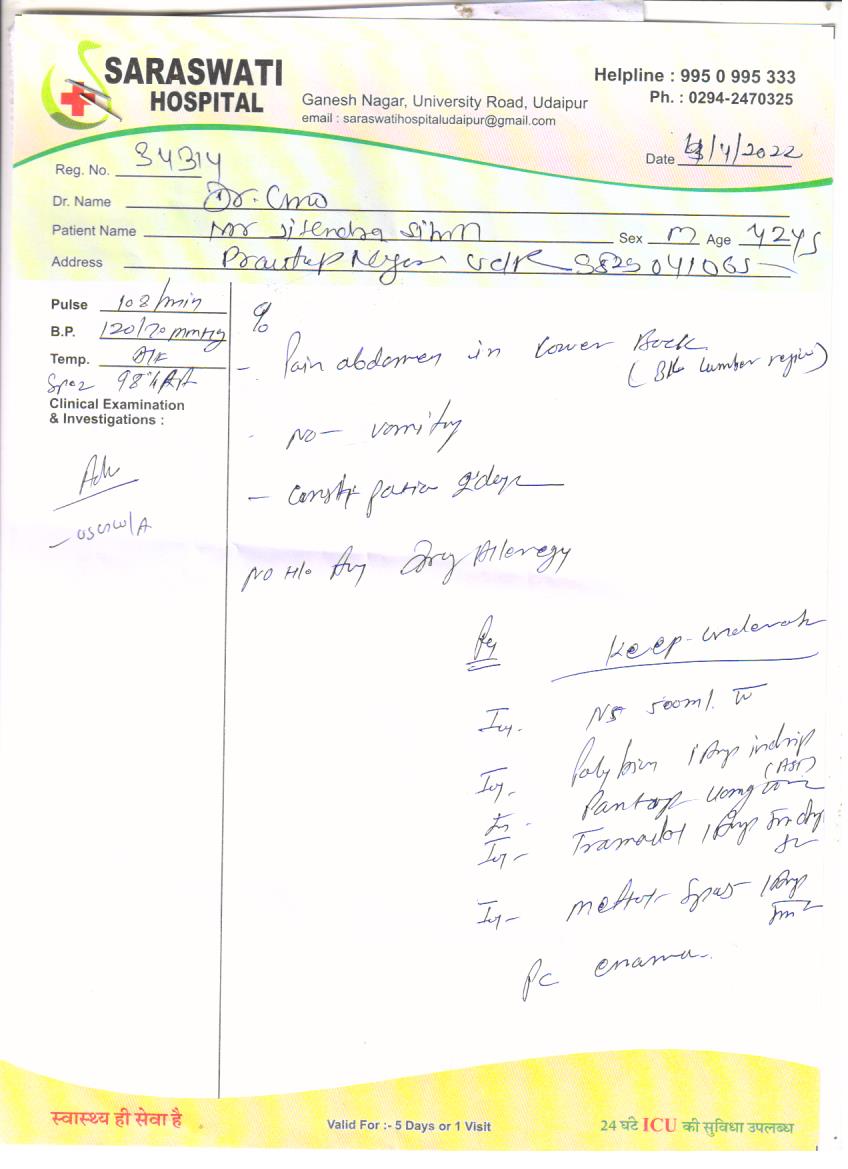 SARASWATI
HOSPITAL
Ganesh Nagar, University Road, Udaipur
email : saraswatihospitaludaipur@gmail.com
Helpline : 995 0 995 333
Ph. : 0294-2470325
Date /4/2022
Reg. No. 34314
Dr. Name Dr. CMO
Patient Name Mr Jitendra
Sex M Age 42 yrs
Address
Pulse 108/min
B.P. 120/70 mmHg
Temp.
Spo2 98%
Clinical Examination
& Investigations :
Adv
- USG W/A
c/o
- Pain abdomen in Lower Back
(B/L Lumber region)
- No vomiting
- Constipation 2 days
No H/o Any Drug Allergy
Rx
Inj. NS 500ml IV
Inj. Polybion 1 Amp in drip
(AST)
Inj. Pantop 40mg
Inj- Tramadol 1 Amp in drip
Inj- Spas 1 Amp
IM
PC enama.
स्वास्थ्य ही सेवा है
Valid For :- 5 Days or 1 Visit
24 घंटे ICU की सुविधा उपलब्ध